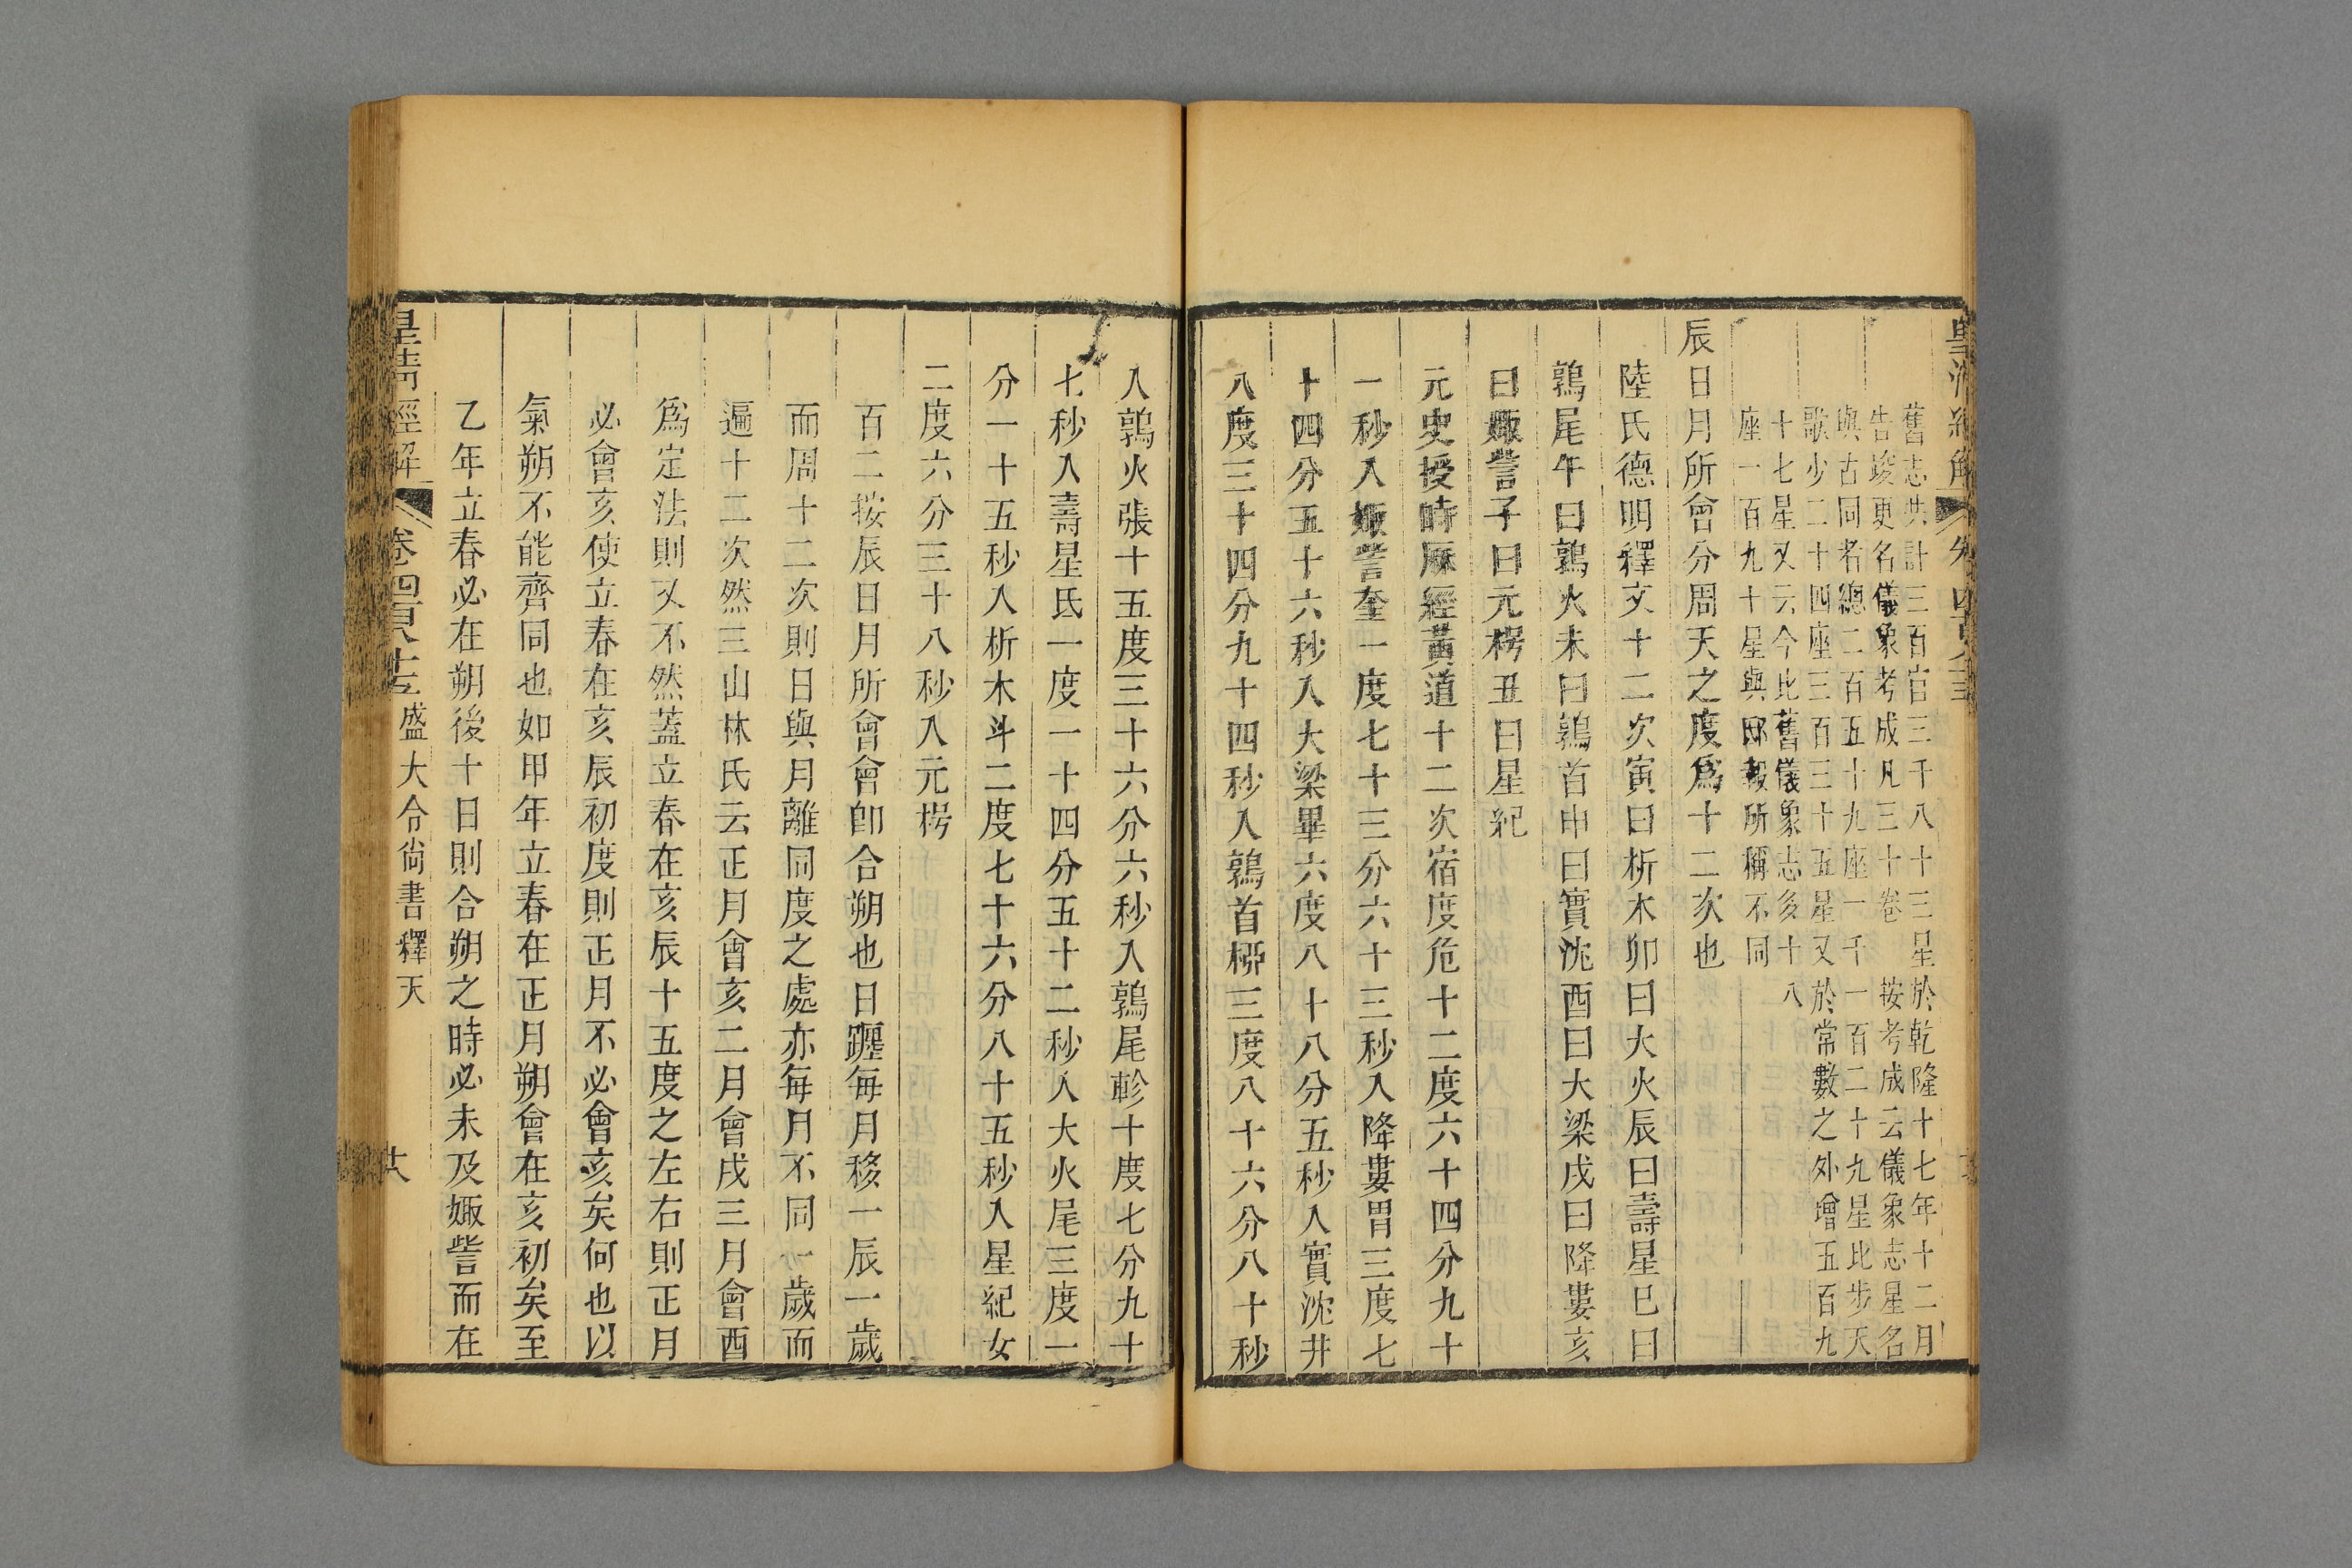 皇清經解
舊志共計三百官三千八十三星於乾隆十七年十二月
告竣更名儀象考成凡三十卷 按考成云儀象志星名
與古同者總二百五十九座一千一百二十九星比步天
歌少二十四座三百三十五星又於常數之外增五百九
十七星又云今比舊儀象志多十八
座一百九十星與邸報所稱不同
辰日月所會分周天之度爲十二次也
陸氏德明釋文十二次寅曰析木卯曰大火辰曰壽星巳曰
鶉尾午曰鶉火未曰鶉首申曰實沈酉曰大梁戌曰降婁亥
曰娵訾子曰元枵丑曰星紀
元史授時厤經黃道十二次宿度危十二度六十四分九十
一秒入娵訾奎一度七十三分六十三秒入降婁胃三度七
十四分五十六秒入大梁畢六度八十八分五秒入實沈井
八度三十四分九十四秒入鶉首柳三度八十六分八十秒
入鶉火張十五度三十六分六秒入鶉尾軫十度七分九十
七秒入壽星氐一度一十四分五十二秒入大火尾三度一
分一十五秒入析木斗二度七十六分八十五秒入星紀女
二度六分三十八秒入元枵
百二按辰日月所會會卽合朔也日躔每月移一辰一歲
而周十二次則日與月離同度之處亦每月不同一歲而
遍十二次然三山林氏云正月會亥二月會戌三月會酉
爲定法則又不然蓋立春在亥辰十五度之左右則正月
必會亥使立春在亥辰初度則正月不必會亥矣何也以
氣朔不能齊同也如甲年立春在正月朔會在亥初矣至
乙年立春必在朔後十日則合朔之時必未及娵訾而在
皇清經解 卷四百八十三 盛大令尙書釋天 六